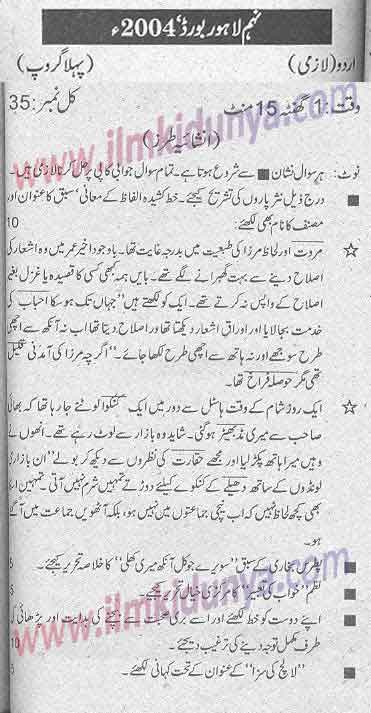 نہم لاہور بورڈ، 2004ء
اردو (لازمی) (پہلا گروپ)
وقت: 1 گھنٹہ 15 منٹ کل نمبر: 35
(انشائیہ طرز)
نوٹ: ہر سوال نشان ■ سے شروع ہوتا ہے۔ تمام سوال جوابی کاپی پر حل کرنا لازمی ہیں۔
■ درج ذیل نثر پاروں کی تشریح کیجئے۔ خط کشیدہ الفاظ کے معانی، سبق کا عنوان اور
مصنف کا نام بھی لکھئے: 10
☆ مروت اور لحاظ مرزا کی طبیعت میں بدرجہ غایت تھا۔ باوجود اخیر عمر میں وہ اشعار کی
اصلاح دینے سے بہت گھبرانے لگے تھے۔ بایں ہمہ بھی کسی کا قصیدہ یا غزل بغیر
اصلاح کے واپس نہ کرتے تھے۔ ایک کو لکھتے ہیں "جہاں تک ہو سکا احباب کی
خدمت بجا لایا اور اوراق اشعار دیکھتا تھا اور اصلاح دیتا تھا اب نہ آنکھ سے اچھی
طرح سوجھے اور نہ ہاتھ سے اچھی طرح لکھا جائے۔" اگرچہ مرزا کی آمدنی قلیل
تھی مگر حوصلہ فراخ تھا۔
☆ ایک روز شام کے وقت ہاسٹل سے دور میں ایک کنکوا لوٹنے جا رہا تھا کہ بھائی
صاحب سے میری مڈبھیڑ ہو گئی۔ شاید وہ بازار سے لوٹ رہے تھے۔ انھوں نے
وہیں میرا ہاتھ پکڑ لیا اور مجھے حقارت کی نظروں سے دیکھ کر بولے "ان بازاری
لونڈوں کے ساتھ دھیلے کے کنکوے کیلئے دوڑتے تمہیں شرم نہیں آتی۔ تمہیں
بھی کچھ لحاظ نہیں کہ اب نیچی جماعتوں میں نہیں ہو، بلکہ آٹھویں جماعت میں آگئے
ہو۔
■ پطرس بخاری کے سبق "سویرے جو کل آنکھ میری کھلی" کا خلاصہ تحریر کیجئے۔
■ نظم کا مرکزی خیال تحریر کیجئے۔
■ اپنے دوست کو خط لکھئے اور اسے بری صحبت سے بچنے کی ہدایت اور پڑھائی کی
طرف مکمل توجہ دینے کی ترغیب دیجئے۔ 10
■ "لالچ کی سزا" کے عنوان کے تحت کہانی لکھئے۔
www.ilmkidunya.com
www.ilmkidunya.com
www.ilmkidunya.com